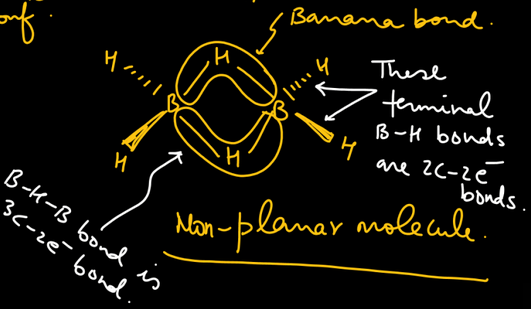 onf.
Banana bond.
H
H
H
B
B
H
H
H
These
terminal
B-H bonds
are 2c-2e⁻
bonds.
B-H-B bond is
3c-2e⁻ bond.
Non-planar molecule.